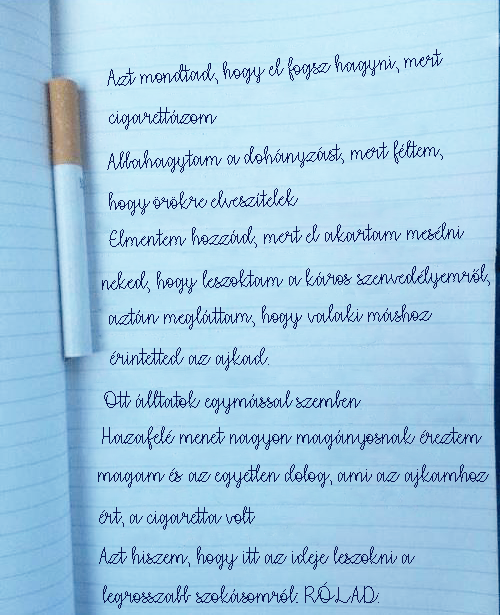 Azt mondtad, hogy el fogsz hagyni, mert
cigarettázom
Abbahagytam a dohányzást, mert féltem,
hogy örökre elveszítelek
Elmentem hozzád, mert el akartam mesélni
neked, hogy leszoktam a káros szenvedélyemről,
aztán megláttam, hogy valaki máshoz
érintetted az ajkad.
Ott álltatok egymással szemben
Hazafelé menet nagyon magányosnak éreztem
magam és az egyetlen dolog, ami az ajkamhoz
ért, a cigaretta volt
Azt hiszem, hogy itt az ideje leszokni a
legrosszabb szokásomról: RÓLAD.